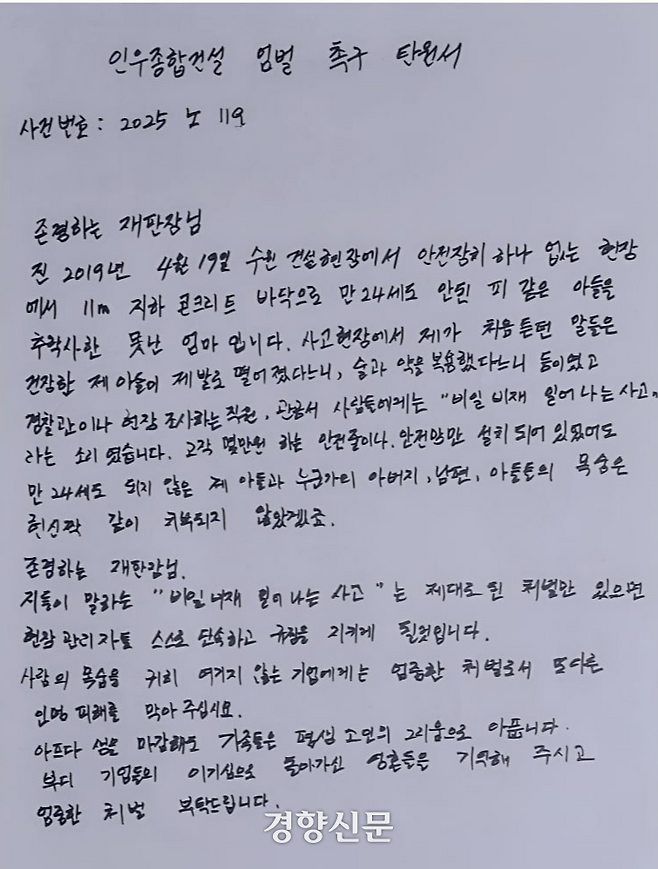 인우종합건설 엄벌 촉구 탄원서
사건번호 : 2025 노 119
존경하는 재판장님
전 2019년 4월 19일 수원 건설현장에서 안전장치 하나 없는 현장
에서 11m 지하 콘크리트 바닥으로 만24세도 안된 피 같은 아들을
추락사한 못난 엄마 입니다. 사고현장에서 제가 처음 들은 말들은
건장한 제 아들이 제 발로 떨어졌다느니, 술과 약을 복용했다느니 등이였고
경찰관이나 현장 조사하는 직원, 관공서 사람들에게는 "비일 비재 일어 나는 사고"
라는 소리 였습니다. 고작 몇만원 하는 안전줄이나, 안전망만 설치 되어 있었어도
만 24세도 되지 않은 제 아들과 누군가의 아버지, 남편, 아들들의 목숨은
헌신짝 같이 취급되지 않았겠죠.
존경하는 재판장님.
저들이 말하는 "비일비재 일어나는 사고"는 제대로 된 처벌만 있으면
현장 관리자들 스스로 단속하고 규칙을 지키게 될것입니다.
사람의 목숨을 귀히 여기지 않는 기업에게는 엄중한 처벌로서 또다른
인명 피해를 막아 주십시요.
아프다 삶을 마감해도 가족들은 평생 그리움으로 아픕니다.
부디 기업들의 이기심으로 돌아가신 영혼들을 기억해 주시고
엄중한 처벌 부탁드립니다.
경향신문